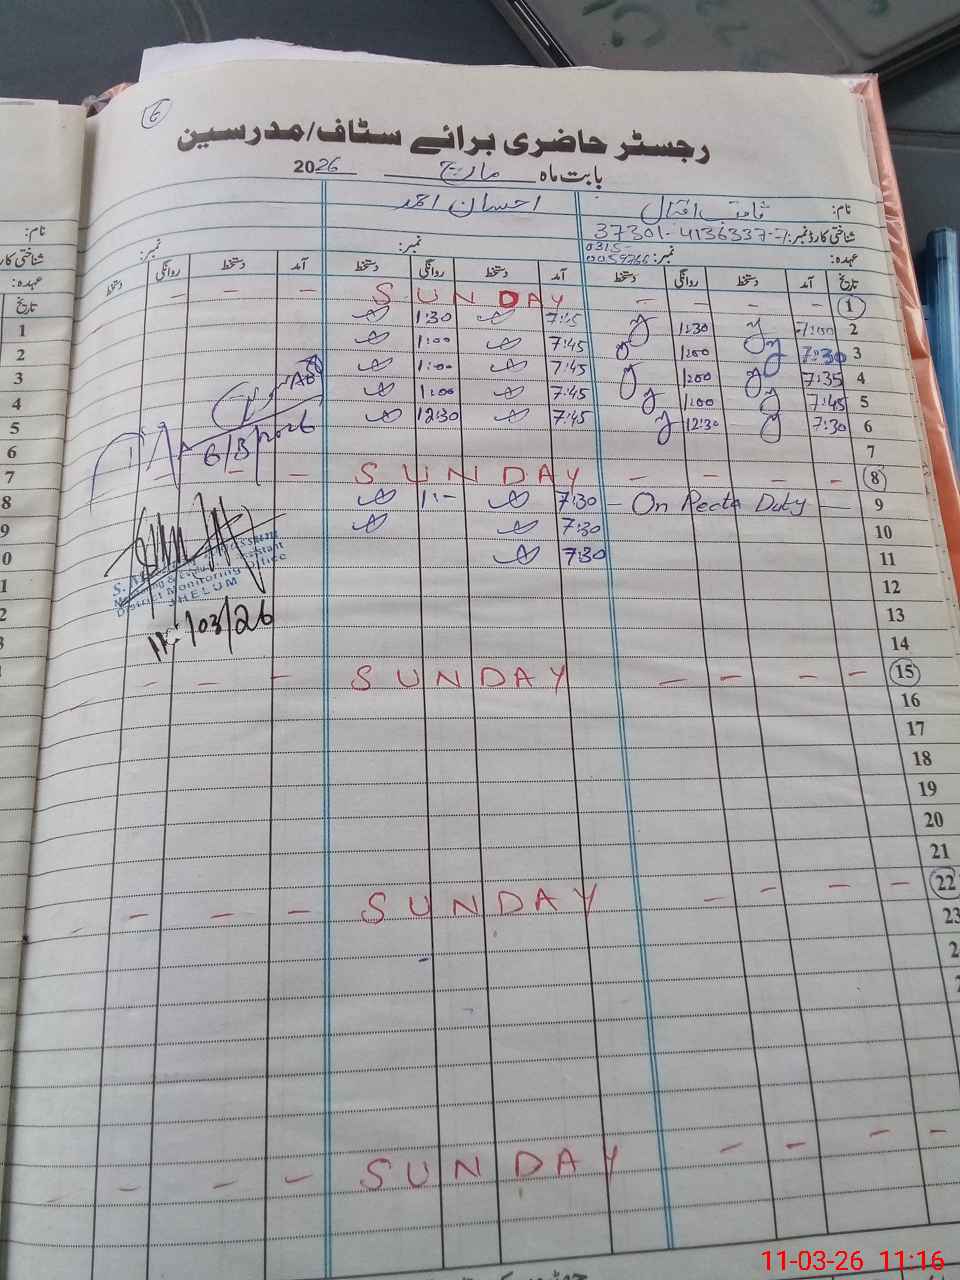 6
رجسٹر حاضری برائے سٹاف/مدرسین
بابت ماہ مارچ 2026
نام: ثاقب اقبال احسان احمد
شناختی کارڈ نمبر: 37301-4136337-7
عہدہ: نمبر: 0315- نمبر: نمبر:
تاریخ آمد دستخط روانگی دستخط آمد دستخط روانگی دستخط آمد دستخط روانگی دستخط
1 - - - - SUNDAY - - - -
2 1:30 7:45 1:30
3 7:30 1:00 7:45 1:00
4 7:35 1:00 7:45 1:00
5 7:45 1:00 7:45 1:00
6 7:30 12:30 7:45 12:30
7
6/3/2026
8 - - - SUNDAY - - -
9 - On Pecta Duty - 7:30 1:-
10 7:30
11 7:30
12
Monitoring & Evaluation Assistant
District Monitoring Office
JHELUM
13
11/03/26
14
15 - - - - SUNDAY - - -
16
17
18
19
20
21
22 - - - - SUNDAY - - -
23
- - - - SUNDAY - - - -
نام:
شناختی کارڈ
عہدہ:
تاریخ
1
2
3
4
5
6
7
8
9
0
1
2
3
11-03-26 11:16